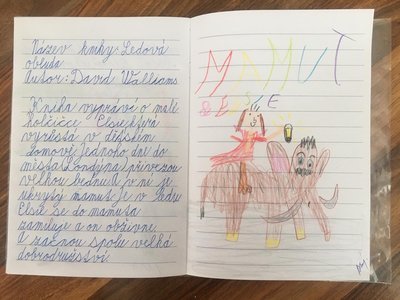 Název knihy: Ledová
obluda
Autor: David Walliams
Kniha vypráví o malé
holčičce Elsie, která
vyrůstá v dětském
domově. Jednoho dne do
města Londýna přivezou
velkou bednu a v ní je
ukrytý mamut. Je v ledu
Elsie se do mamuta
zamiluje a on obživne.
A začnou spolu velká
dobrodružství.
MAMUT
& ELSIE